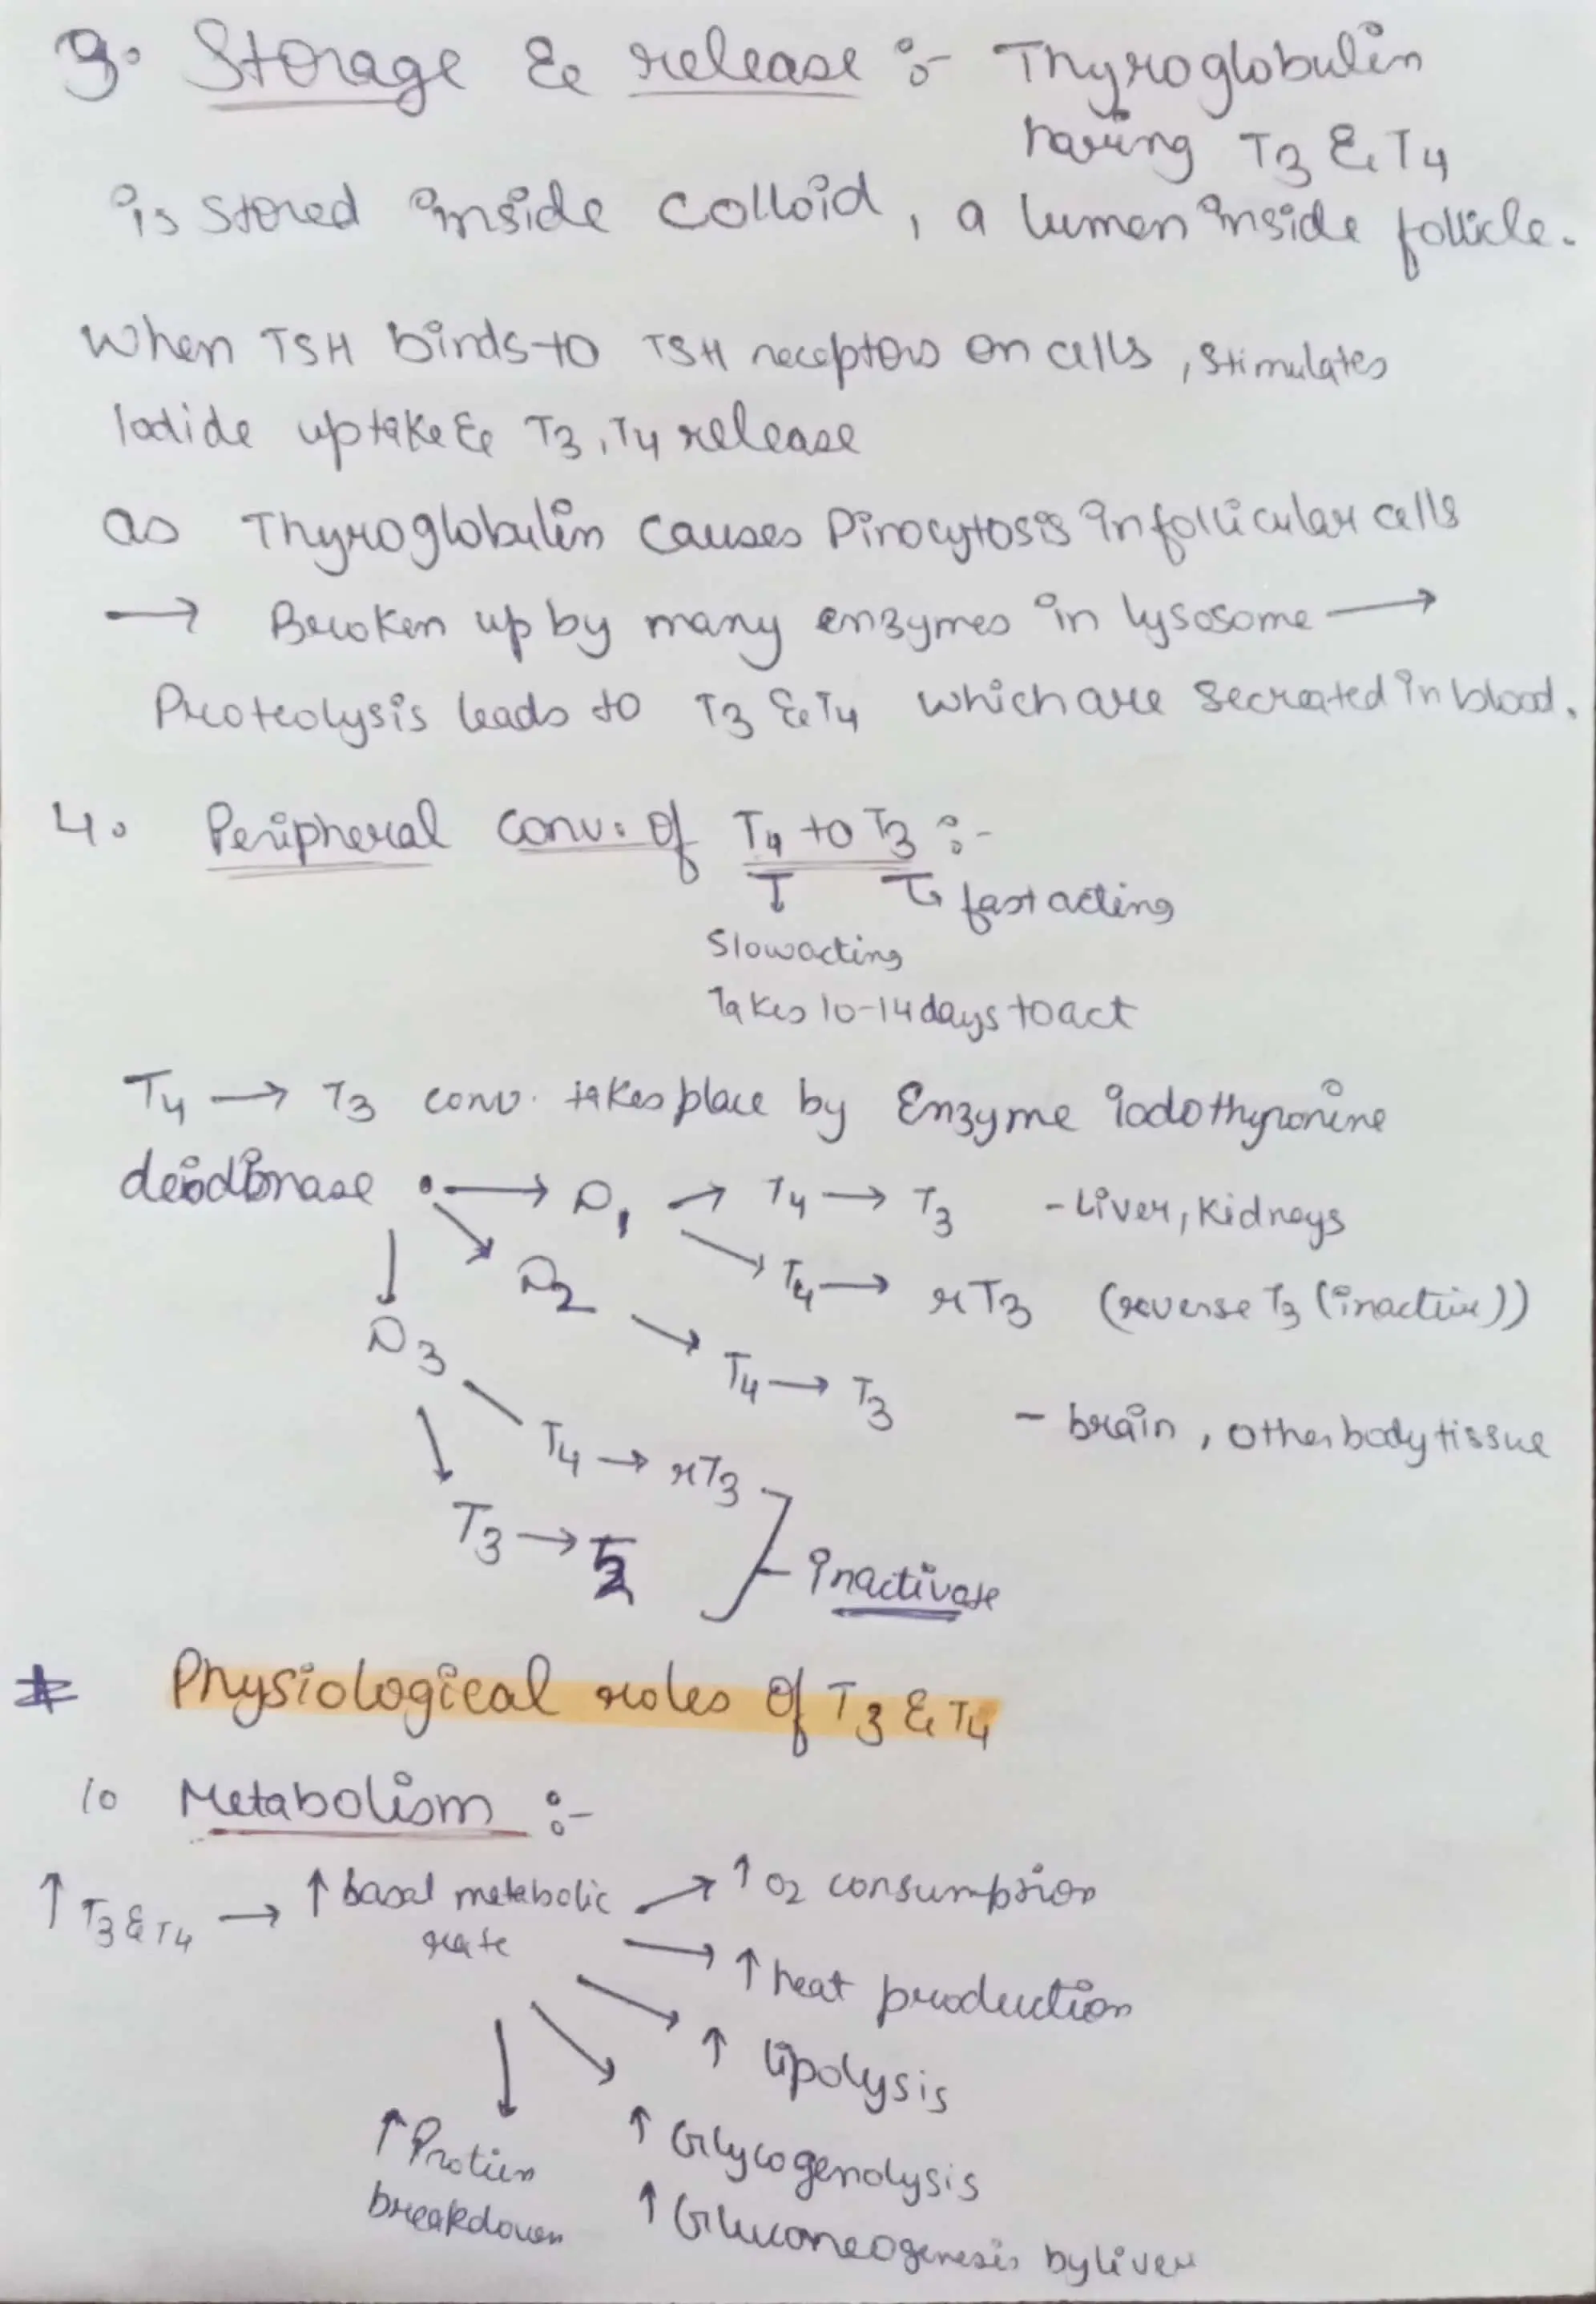 3. Storage & release :- Thyroglobulin
having T3 & T4
is stored inside colloid, a lumen inside follicle.
When TSH binds to TSH receptors on cells, stimulates
Iodide uptake & T3, T4 release
as Thyroglobulin causes Pinocytosis in follicular cells
→ Broken up by many enzymes in lysosome →
Proteolysis leads to T3 & T4 which are secreated in blood.
4. Peripheral conv. of T4 to T3 :-
↳ fast acting
Slow acting
Takes 10-14 days to act
T4 → T3 conv. takes place by Enzyme iodothyronine
deiodinase • → D1 → T4 → T3 - Liver, Kidneys
→ T4 → rT3 (reverse T3 (inactive))
D2
D3
→ T4 → T3 - brain, other body tissue
T4 → rT3
T3 → T2
inactivate
* Physiological roles of T3 & T4
1. Metabolism :-
↑ T3 & T4 → ↑ basal metabolic rate → ↑ O2 consumption
→ ↑ heat production
↑ lipolysis
↑ Protien breakdown
↑ Glycogenolysis
↑ Gluconeogenesis by liver